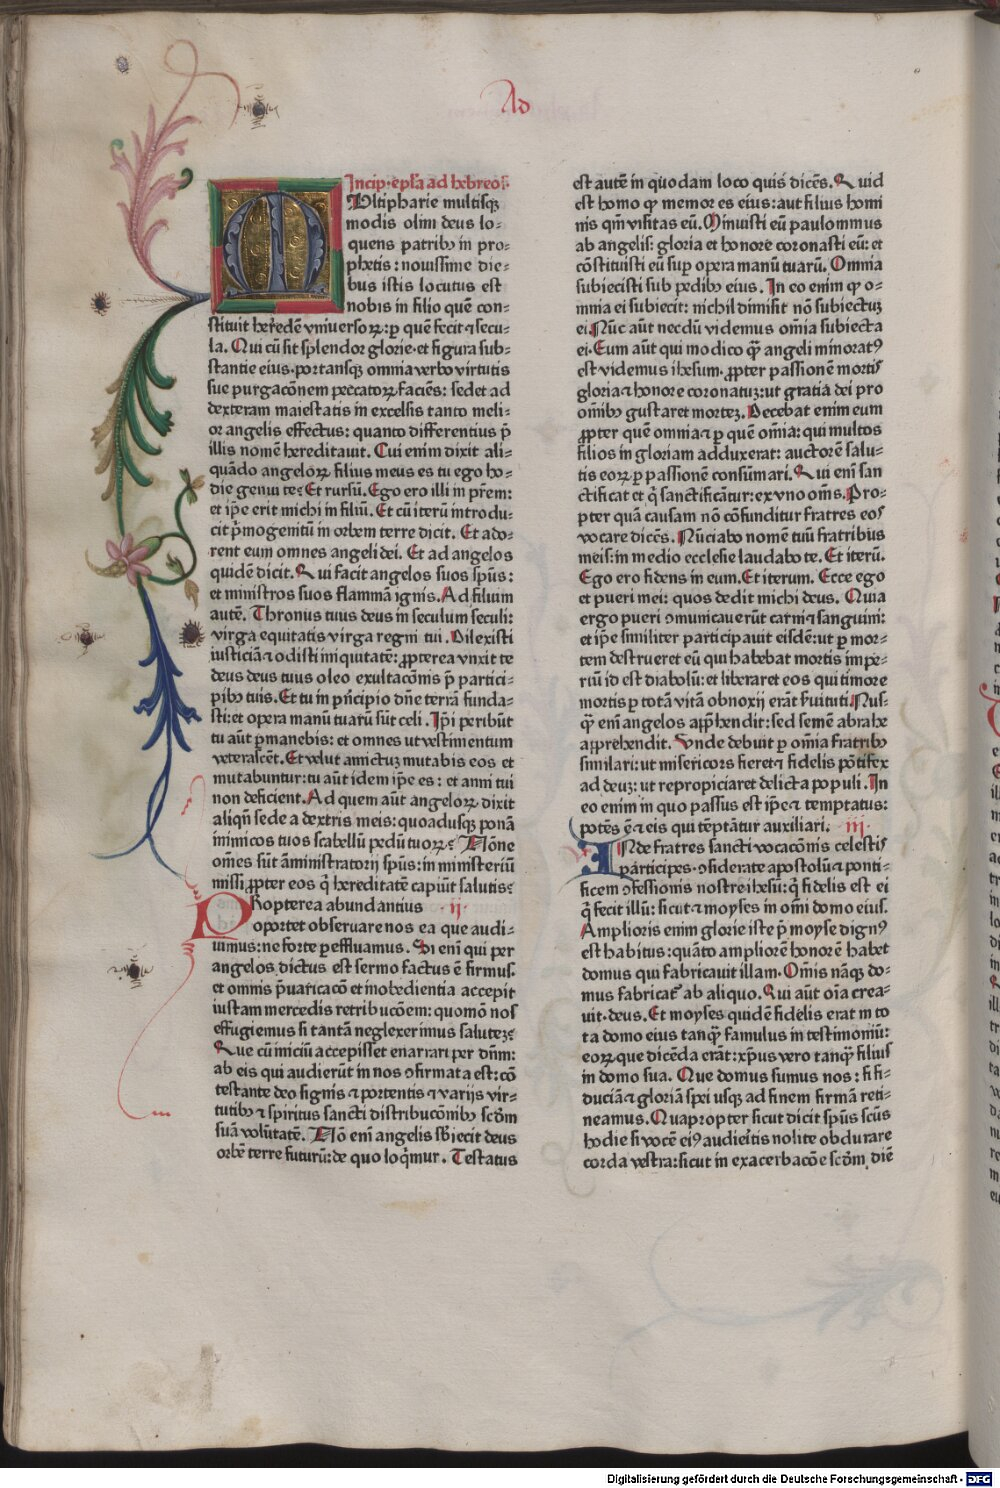 Ad
Incip. epl̄a ad hebreos.
M
Vltipharie multisqꝫ
modis olim deus lo⸗
quens patribꝰ in pro⸗
phetis: nouissime die⸗
bus istis locutus est
nobis in filio quē con⸗
stituit heredē vniuersoꝝ: ꝑ quē fecit ⁊ secu⸗
la. Qui cū sit splendor glorie. et figura sub⸗
stantie eius. portansqꝫ omnia verbo virtutis
sue purgacōnem peccatoꝝ faciēs: sedet ad
dexteram maiestatis in excelsis tanto meli⸗
or angelis effectus: quanto differentius p̄
illis nomē hereditauit. Cui enim dixit ali⸗
quādo angeloꝝ filius meus es tu ego ho⸗
die genui te: Et rursū. Ego ero illi in pr̄em:
et ip̄e erit michi in filiū. Et cū iterū introdu⸗
cit p̄mogenitū in orbem terre dicit. Et ado⸗
rent eum omnes angeli dei. Et ad angelos
quidē dicit. Qui facit angelos suos spūs:
et ministros suos flammā ignis. Ad filium
autē. Thronus tuus deus in seculum seculi:
virga equitatis virga regni tui. Dilexisti
iusticiā ⁊ odisti iniquitatē: ꝓpterea vnxit te
deus deus tuus oleo exultacōnis p̄ partici⸗
pibꝰ tuis. Et tu in pn̄cipio dn̄e terrā funda⸗
sti: et opera manū tuarū sūt celi. Ip̄i peribūt
tu aūt ꝑmanebis: et omnes ut vestimentum
veterascēt. Et velut amictuꝫ mutabis eos et
mutabuntur: tu aūt idem ip̄e es: et anni tui
non deficient. Ad quem aūt angeloꝝ dixit
aliqn̄ sede a dextris meis: quoadusqꝫ ponā
inimicos tuos scabellū pedū tuoꝝ: Nōne
om̄es sūt āministratorij spūs: in ministeriū
missi ꝓpter eos q̄ hereditatē capiūt salutis:
PRopterea abundantius .ij.
oportet obseruare nos ea que audi⸗
uimus: ne forte ꝑeffluamus. Si enī qui per
angelos dictus est sermo factus ē firmus.
et omnis p̄uaricacō et inobedientia accepit
iustam mercedis retribucōem: quomō nos
effugiemus si tantā neglexerimus saluteꝫ:
Que cū iniciū accepisset enarrari per dn̄m:
ab eis qui audierūt in nos ꝯfirmata est: cō
testante deo signis ⁊ portentis ⁊ varijs vir⸗
tutibꝰ ⁊ spiritus sancti distribucōnibꝰ scd̄m
suā volūtatē. Nō enī angelis sb̄iecit deus
orbē terre futurū: de quo loq̄mur. Testatus
est autē in quodam loco quis dicēs. Quid
est homo qꝫ memor es eius: aut filius homi
nis qm̄ visitas eū. Minuisti eū paulominus
ab angelis: gloria et honore coronasti eū: et
cōstituisti eū suꝑ opera manū tuarū. Omnia
subiecisti sub pedibꝰ eius. In eo enim qꝫ o⸗
mnia ei subiecit: nichil dimisit nō subiectuꝫ
ei. Nūc aūt necdū videmus om̄ia subiecta
ei. Eum aūt qui modico qꝫ̄ angeli minoratꝰ
est videmus ihesum. ꝓpter passionē mortis
gloria ⁊ honore coronatuꝫ: ut gratia dei pro
om̄ibꝰ gustaret morteꝫ. Decebat enim eum
ꝓpter quē omnia ⁊ ꝑ quē om̄ia: qui multos
filios in gloriam adduxerat: auctorē salu⸗
tis eoꝝ ꝑ passionē consūmari. Qui enī san
ctificat et q̄ sanctificātur: ex vno om̄s. Pro⸗
pter quā causam nō cōfunditur fratres eos
vocare dicēs. Nūciabo nomē tuū fratribus
meis: in medio ecclesie laudabo te. Et iterū.
Ego ero fidens in eum. Et iterum. Ecce ego
et pueri mei: quos dedit michi deus. Quia
ergo pueri ꝯmunicauerūt carni ⁊ sanguini:
et ip̄e similiter participauit eisdē: ut ꝑ mor⸗
tem destrueret eū qui habebat mortis impe⸗
riū id est diabolū: et liberaret eos qui timore
mortis ꝑ totā vitā obnoxij erāt ẜuituti. Nus⸗
qꝫ̄ enī angelos app̄hendit: sed semē abrahe
apprehendit. Vnde debuit ꝑ om̄ia fratribꝰ
similari: ut misericors fieret ⁊ fidelis pōtifex
ad deuꝫ: ut repropiciaret delicta populi. In
eo enim in quo passus est ip̄e ⁊ temptatus:
potēs ē ⁊ eis qui tēptātur auxiliari. .iij.
INde fratres sancti vocacōnis celestis
participes. ꝯsiderate apostolū ⁊ ponti⸗
ficem ꝯfessionis nostre ihesū: q̄ fidelis est ei
q̄ fecit illū: sicut ⁊ moyses in om̄i domo eius.
Amplioris enim glorie iste p̄ moyse dignꝰ
est habitus: quāto ampliorē honorē habet
domus qui fabricauit illam. Om̄is nāqꝫ do⸗
mus fabricat᷑ ab aliquo. Qui aūt oīa crea⸗
uit. deus. Et moyses quidē fidelis erat in to
ta domo eius tanqꝫ̄ famulus in testimoniū:
eoꝝ que dicēda erāt: xp̄us vero tanqꝫ̄ filius
in domo sua. Que domus sumus nos: si fi⸗
duciā ⁊ gloriā spei usqꝫ ad finem firmā reti⸗
neamus. Quapropter sicut dicit spūs scūs
hodie si vocē eiꝰ audieritis nolite obdurare
corda vestra: sicut in exacerbacōe scd̄m diē
Digitalisierung gefördert durch die Deutsche Forschungsgemeinschaft - DFG